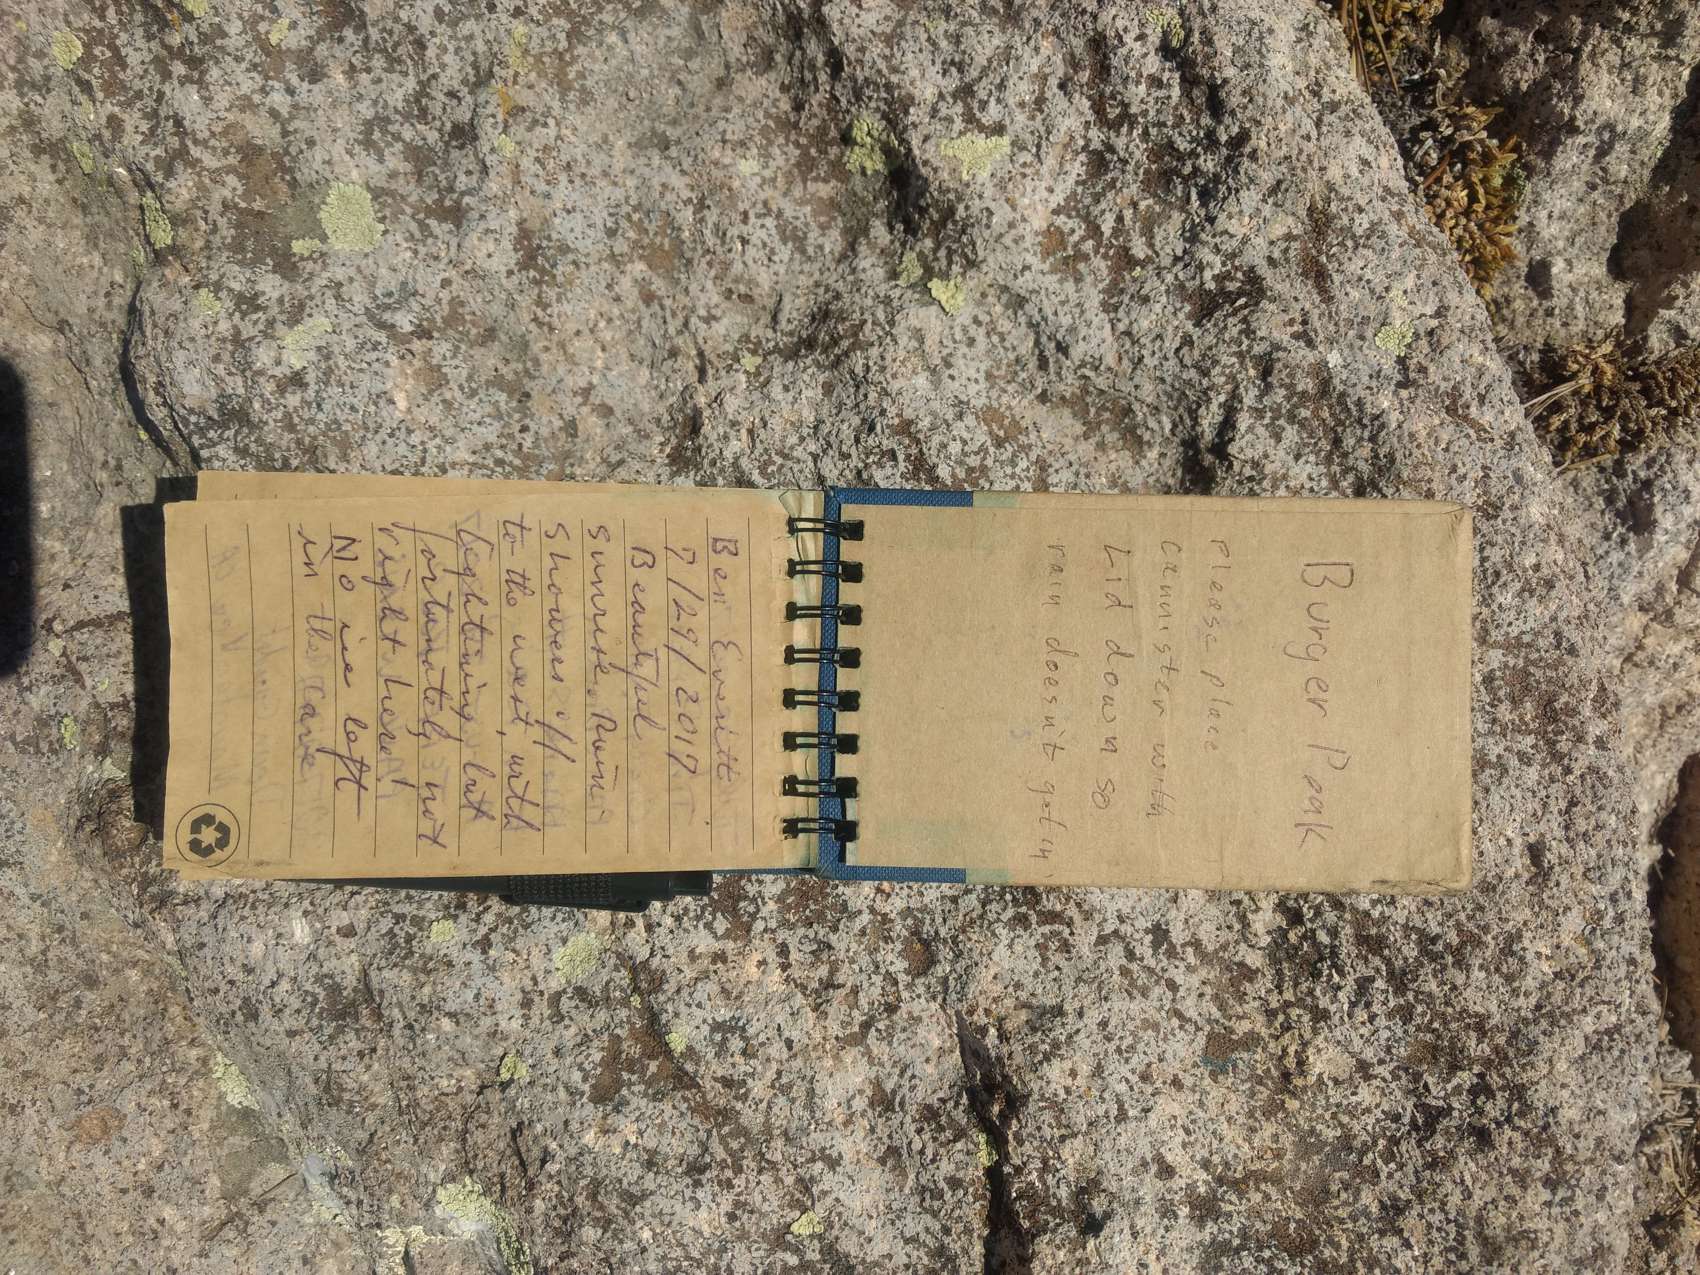 Burger Peak
Please place
cannister with
Lid down so
rain doesn't get in
Ben Everitt
7/29/2017
Beautiful
sunrise. Rain
Showers off
to the west, with
lightning but
fortunately not
right here!
No ice left
in the cave